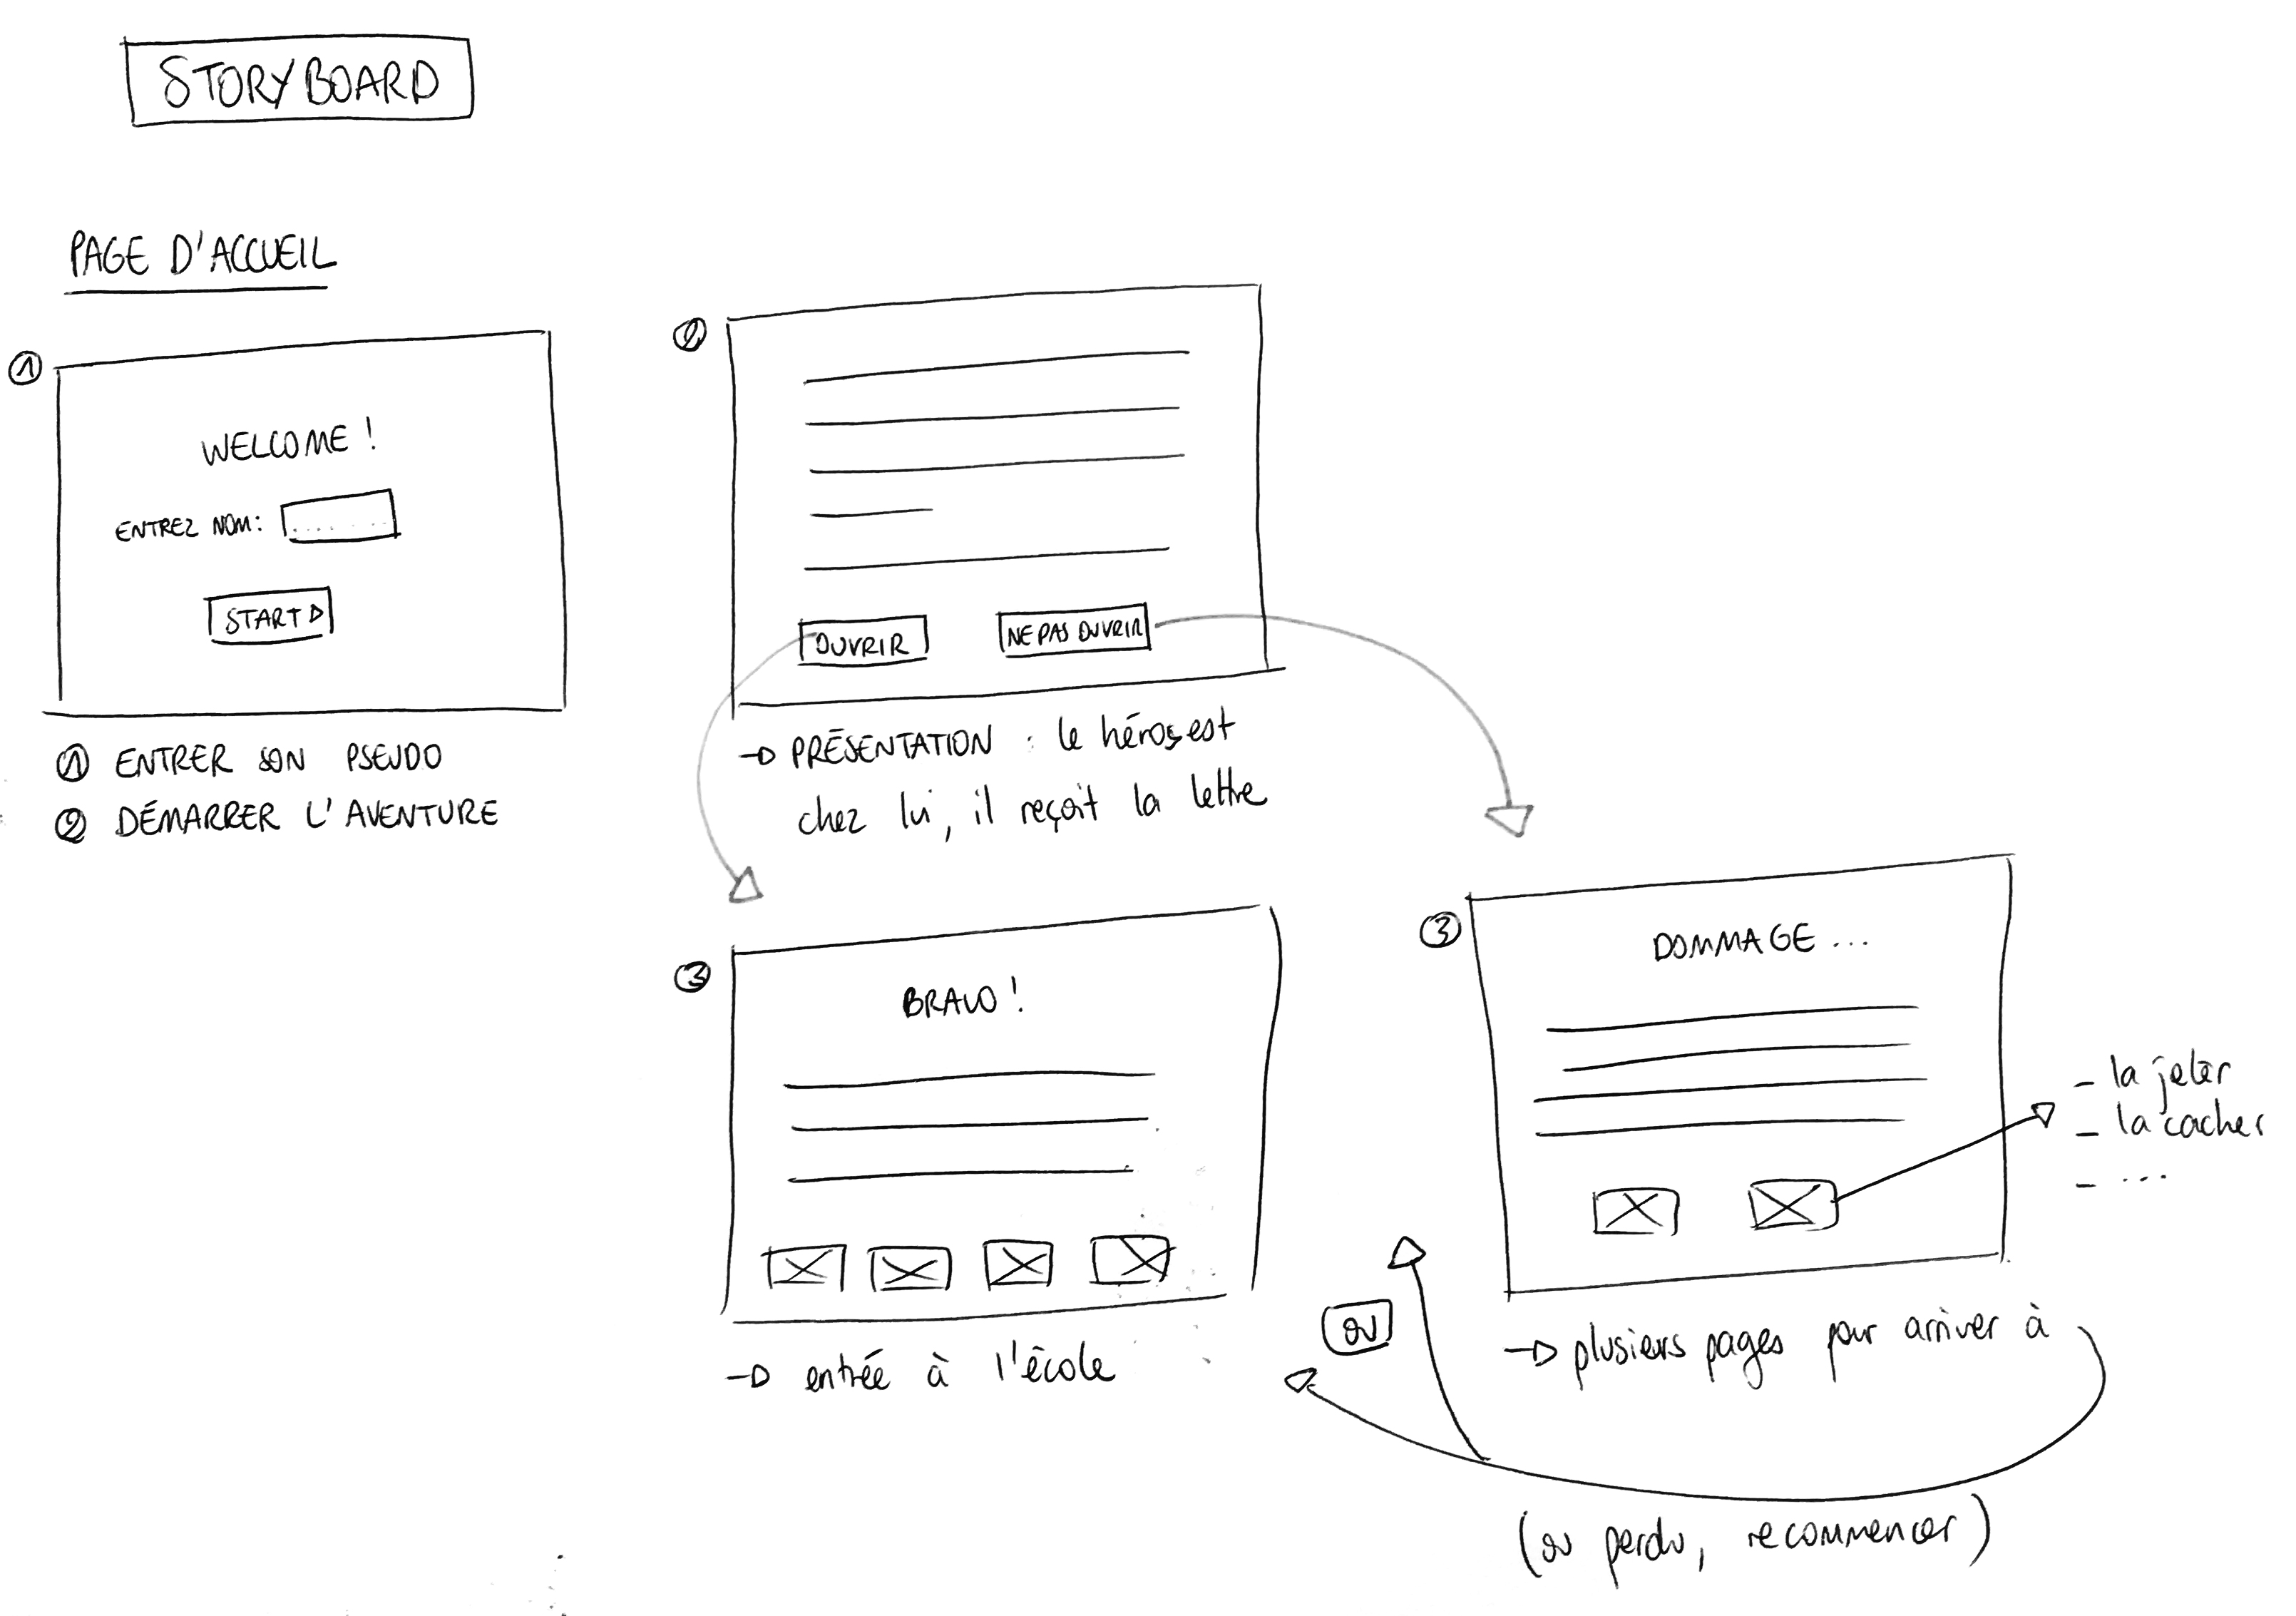 STORYBOARD
PAGE D'ACCUEIL
①
WELCOME !
ENTREZ NOM: .......
START
① ENTRER SON PSEUDO
② DÉMARRER L'AVENTURE
②
OUVRIR
NE PAS OUVRIR
PRÉSENTATION : le héros est
chez lui, il reçoit la lettre
③
BRAVO !
entrée à l'école
③
DOMMAGE ...
- la jeter
- la cacher
- ...
ou
plusieurs pages pour arriver à
(ou perdu, recommencer)